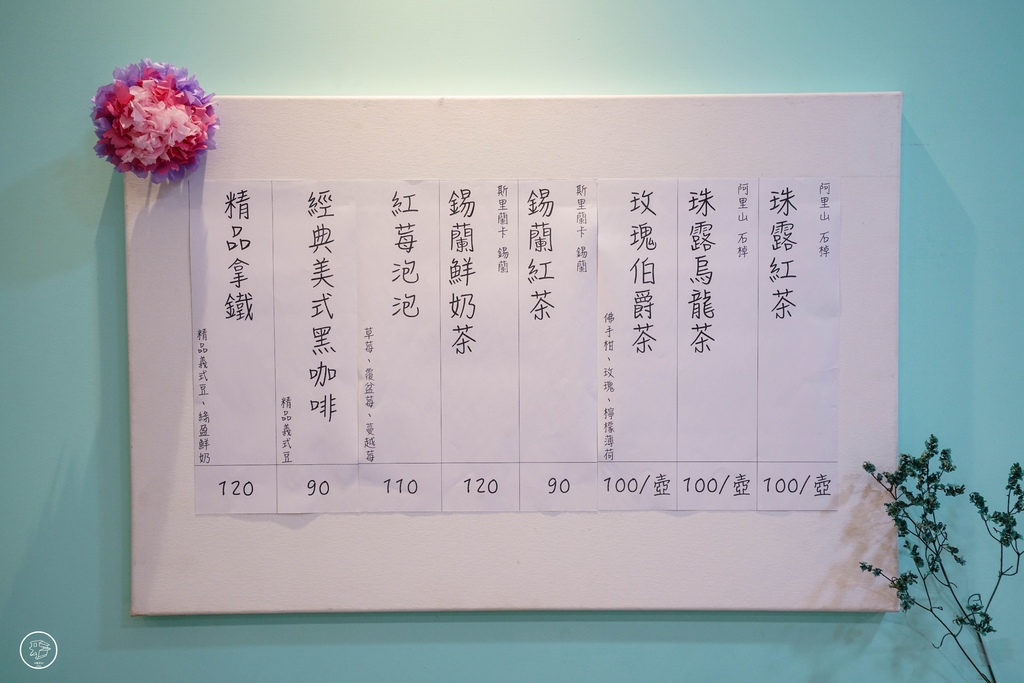 阿里山 石棹
珠露紅茶
100/壺
阿里山 石棹
珠露烏龍茶
100/壺
玫瑰伯爵茶
佛手柑、玫瑰、檸檬薄荷
100/壺
斯里蘭卡 錫蘭
錫蘭紅茶
90
斯里蘭卡 錫蘭
錫蘭鮮奶茶
120
紅莓泡泡
草莓、覆盆莓、蔓越莓
110
經典美式黑咖啡
精品義式豆
90
精品拿鐵
精品義式豆、綠盈鮮奶
120